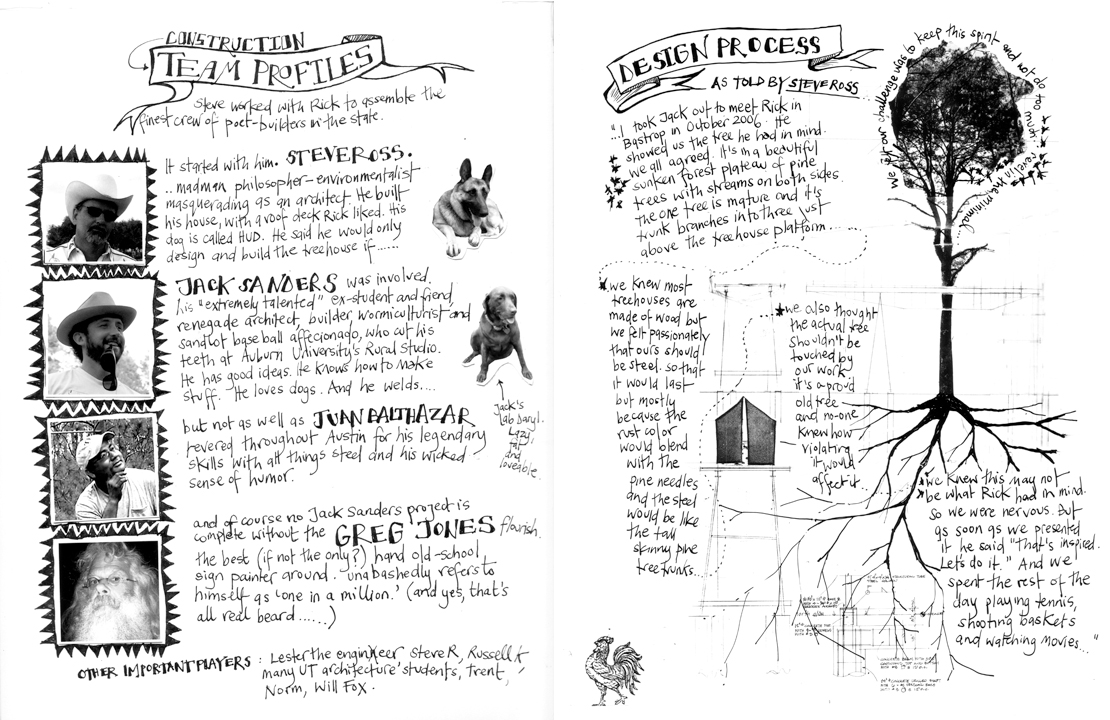 CONSTRUCTION
TEAM PROFILES
Steve worked with Rick to assemble the
finest crew of poet-builders in the state.
It started with him. STEVE ROSS.
.. madman philosopher-environmentalist
masquerading as an architect. He built
his house, with a roof deck Rick liked. His
dog is called HUD. He said he would only
design and build the treehouse if......
JACK SANDERS was involved.
his "extremely talented" ex-student and fiend,
renegade architect, builder, wormiculturist and
sandlot baseball affecionado, who cut his
teeth at Auburn University's Rural Studio.
He has good ideas. He knows how to make
stuff. He loves dogs. And he welds....
Jack's
lab Daryl.
Lazy,
fat
and
loveable
but not as well as JUAN BALTHAZAR
revered throughout Austin for his legendary
skills with all things steel and his wicked
sense of humor.
and of course no Jack Sanders project is
complete without the GREG JONES flourish.
the best (if not the only?) hand old-school
sign painter around. unabashedly refers to
himself as 'one in a million.' (and yes, that's
all real beard......)
OTHER IMPORTANT PLAYERS : Lester the engineer Steve R, Russell K
many UT architecture students, Trent,
Norm, Will Fox.
DESIGN PROCESS
AS TOLD BY STEVE ROSS
"...I took Jack out to meet Rick in
Bastrop in October 2006. He
showed us the tree he had in mind.
we all agreed. it's in a beautiful
sunken forest plateau of pine
trees with streams on both sides.
the one tree is mature and it's
trunk branches into three just
above the treehouse platform....
we felt our challenge was to keep this spirit and not do too much. revel in the minimal..
we knew most
treehouses are
made of wood but
we felt passionately
that ours should
be steel. so that
it would last
but mostly
because the
rust color
would blend
with the
pine needles
and the steel
would be like
the tall
skinny pine
tree trunks...
we also thought
the actual tree
shouldn't be
touched by
our work.
it's a proud
old tree
and no-one
knew how
violating
it would
affect it..
we knew this may not
be what Rick had in mind.
so we were nervous. But
as soon as we presented
it he said "That's inspired.
Let's do it." And we
spent the rest of the
day playing tennis,
shooting baskets
and watching movies..."